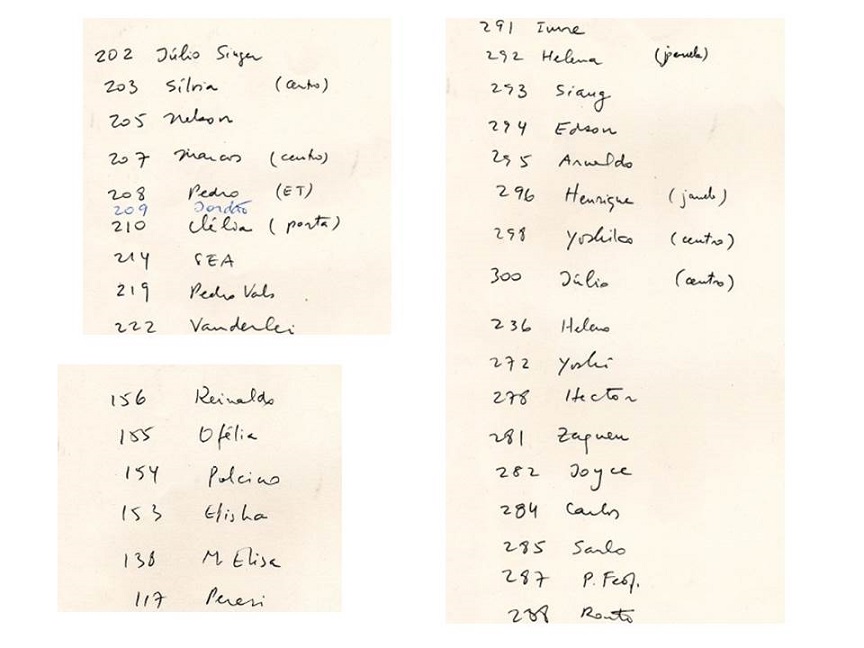 202 Júlio Singer
203 Sílvia (centro)
205 Nelson
207 Marcos (centro)
208 Pedro (ET)
209 Jordão
210 Clélia (porta)
214 SEA
219 Pedro Vals
222 Vanderlei
156 Reinaldo
155 Ofélia
154 Polcino
153 Elisha
138 M Elisa
117 Peresi
291 Imre
292 Helena (janela)
293 Siang
294 Edson
295 Arnaldo
296 Henrique (janela)
298 Yoshiko (centro)
300 Júlio (centro)
236 Heleno
272 Yoshi
278 Hector
281 Zaguen
282 Joyce
284 Carlos
285 Saulo
287 P. Feof.
288